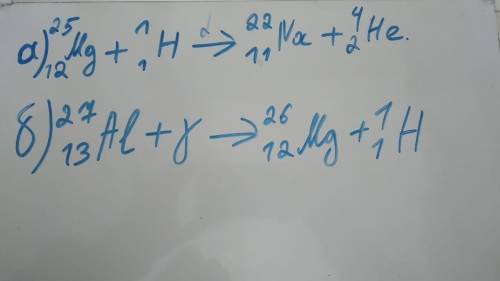 а) ²⁵₁₂Mg + ¹₁H → ²²₁₁Na + ⁴₂He.
б) ²⁷₁₃Al + γ → ²⁶₁₂Mg + ¹₁H